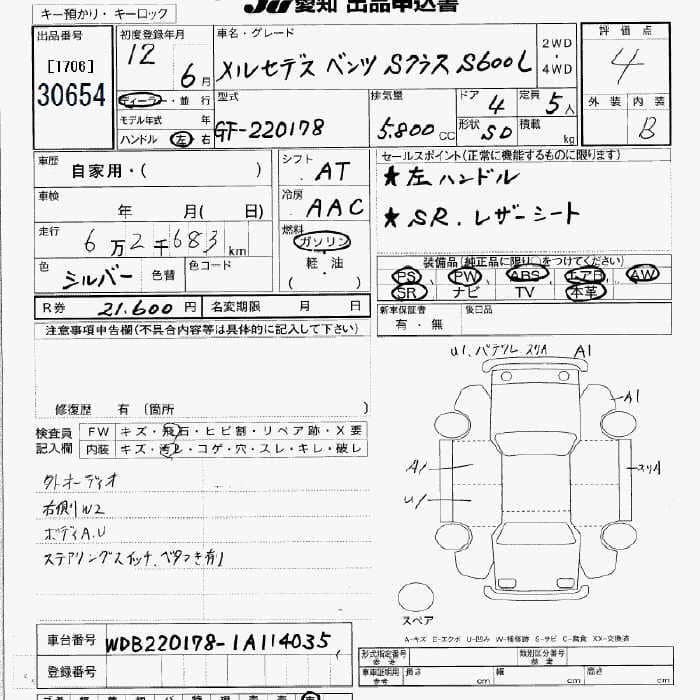 JU 愛知 出品申込書
キー預かり・キーロック
出品番号
[1706]
30654
初度登録年月
12
6月
ディーラー・並行
モデル年式 年
ハンドル 左 右
車名・グレード
メルセデス ベンツ Sクラス S600L
2WD
・
4WD
型式
GF-220178
排気量
5.800 CC
ドア
4
定員
5人
形状
SD
積載
kg
評価点
4
外装 内装
B
車歴
自家用・( )
車検
年 月( 日)
走行
6万2千683km
色
シルバー 色替
色コード
シフト
AT
冷房
AAC
燃料
ガソリン
軽・油
( )
セールスポイント(正常に機能するものに限ります)
★左ハンドル
★SR.レザーシート
装備品(純正品に限り○をつけてください)
PS PW ABS エアB AW
SR ナビ TV 本革
R券 21.600円 名変期限 月 日
新車保証書
有・無
後日品
注意事項申告欄(不具合内容等は具体的に記入して下さい)
修復歴 有(箇所 )
検査員
記入欄
FW キズ・飛石・ヒビ割・リペア跡・X要
内装 キズ・汚レ・コゲ・穴・スレ・キレ・破レ
外オーディオ
右側W2
ボディA.U
ステアリングスイッチ.ベタつき有り
U1. A1
A1
A1
U1
スリA
スペア
A-キズ E-エクボ U-凹み W-補修跡 S-サビ C-腐食 XX-交換済
車台番号 WDB220178-1A114035
登録番号
型式指定番号
参考
類別区分番号
参考
車庫証明用
参考
長さ cm 幅 cm 高さ cm